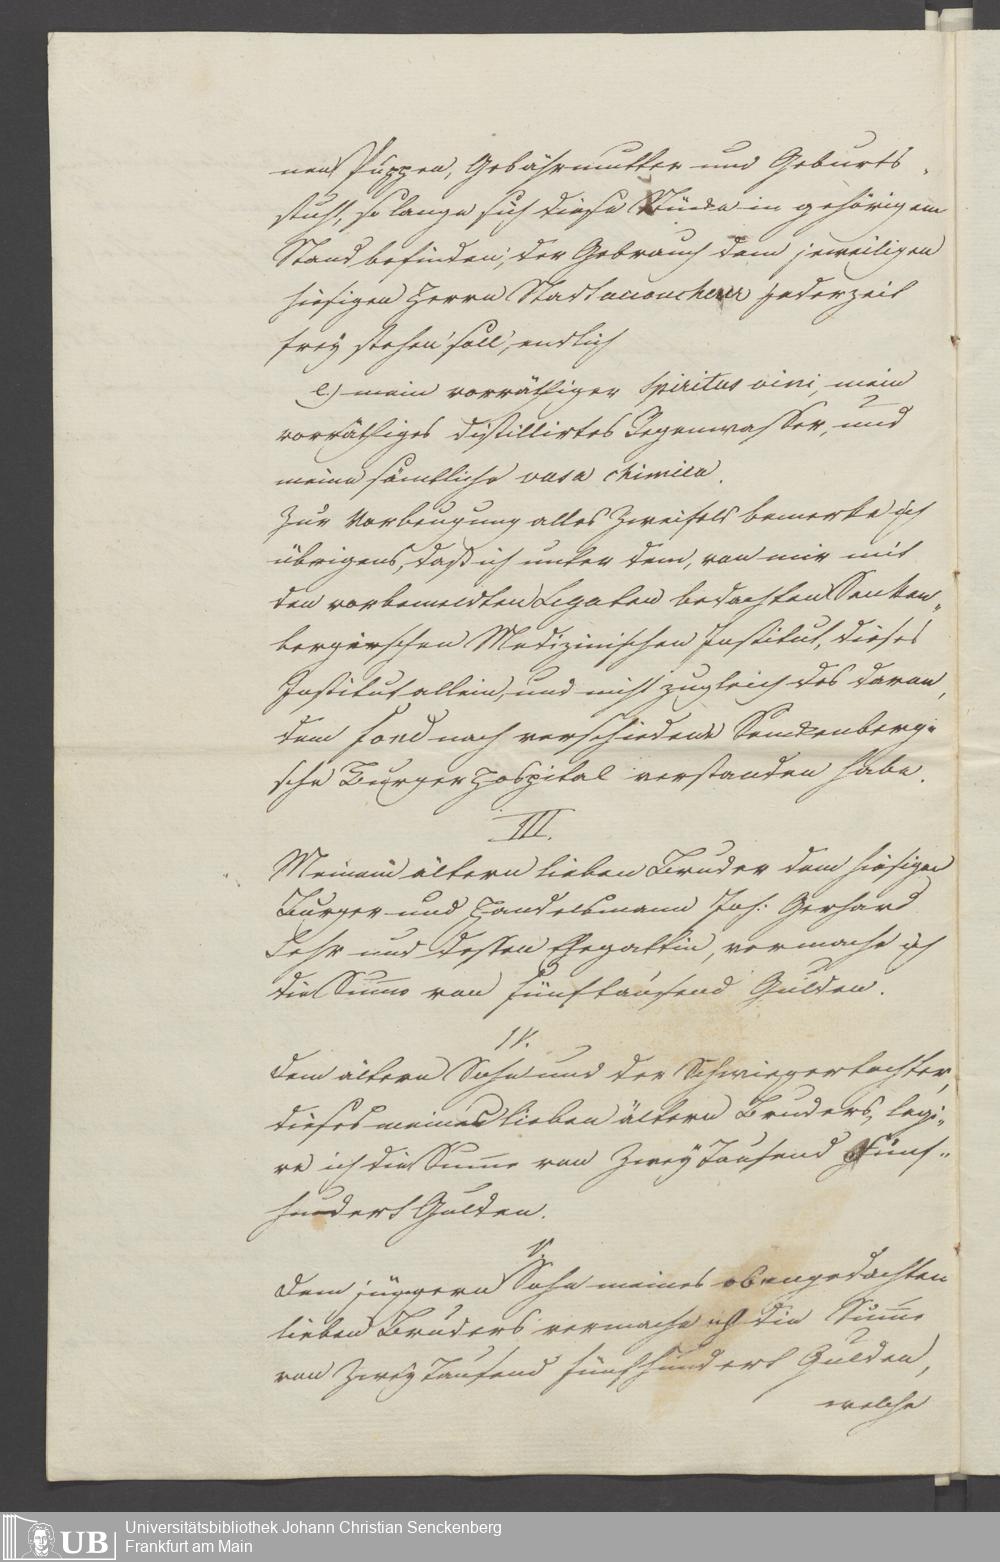 nen Puppen, Gebährmutter und Geburts-
stuhl, so lange sich diese Stücke in gehörigem
Stand befinden, der Gebrauch dem jeweiligen
hiesigen Herrn Stadtaccoucheur jederzeit
frey stehen soll, endlich
e.) mein vorräthiger Spiritus vini, mein
vorräthiges distillirtes Regenwasser, und
meine sämtliche vasa chimica.
Zur Vorbeugung alles Zweifels bemerke ich
übrigens, daß ich unter dem, von mir mit
den vorbemeldten Legaten bedachten Senken„
bergischen Medizinischen Institut, dieses
Institut allein, und nicht zugleich das davon,
dem Fond nach verschiedene Senckenberg„
sche Burger Hospital verstanden habe.
III.
Meinem ältern lieben Bruder dem hiesigen
Burger und Handelsmann Joh: Gerhard
Lehr und dessen Ehegattin, vermache ich
die Summe von fünftausend Gulden.
IV.
Dem ältern Sohn und der Schwiegertochter,
dieses meines lieben ältern Bruders, legi„
re ich die Summe von Zwey Tausend Fünf„
hundert Gulden.
V.
Dem jüngern Sohn meines obengedachten
lieben Bruders vermache ich die Summe
von Zwey Tausend fünfhundert Gulden,
welche
UB
Universitätsbibliothek Johann Christian Senckenberg
Frankfurt am Main